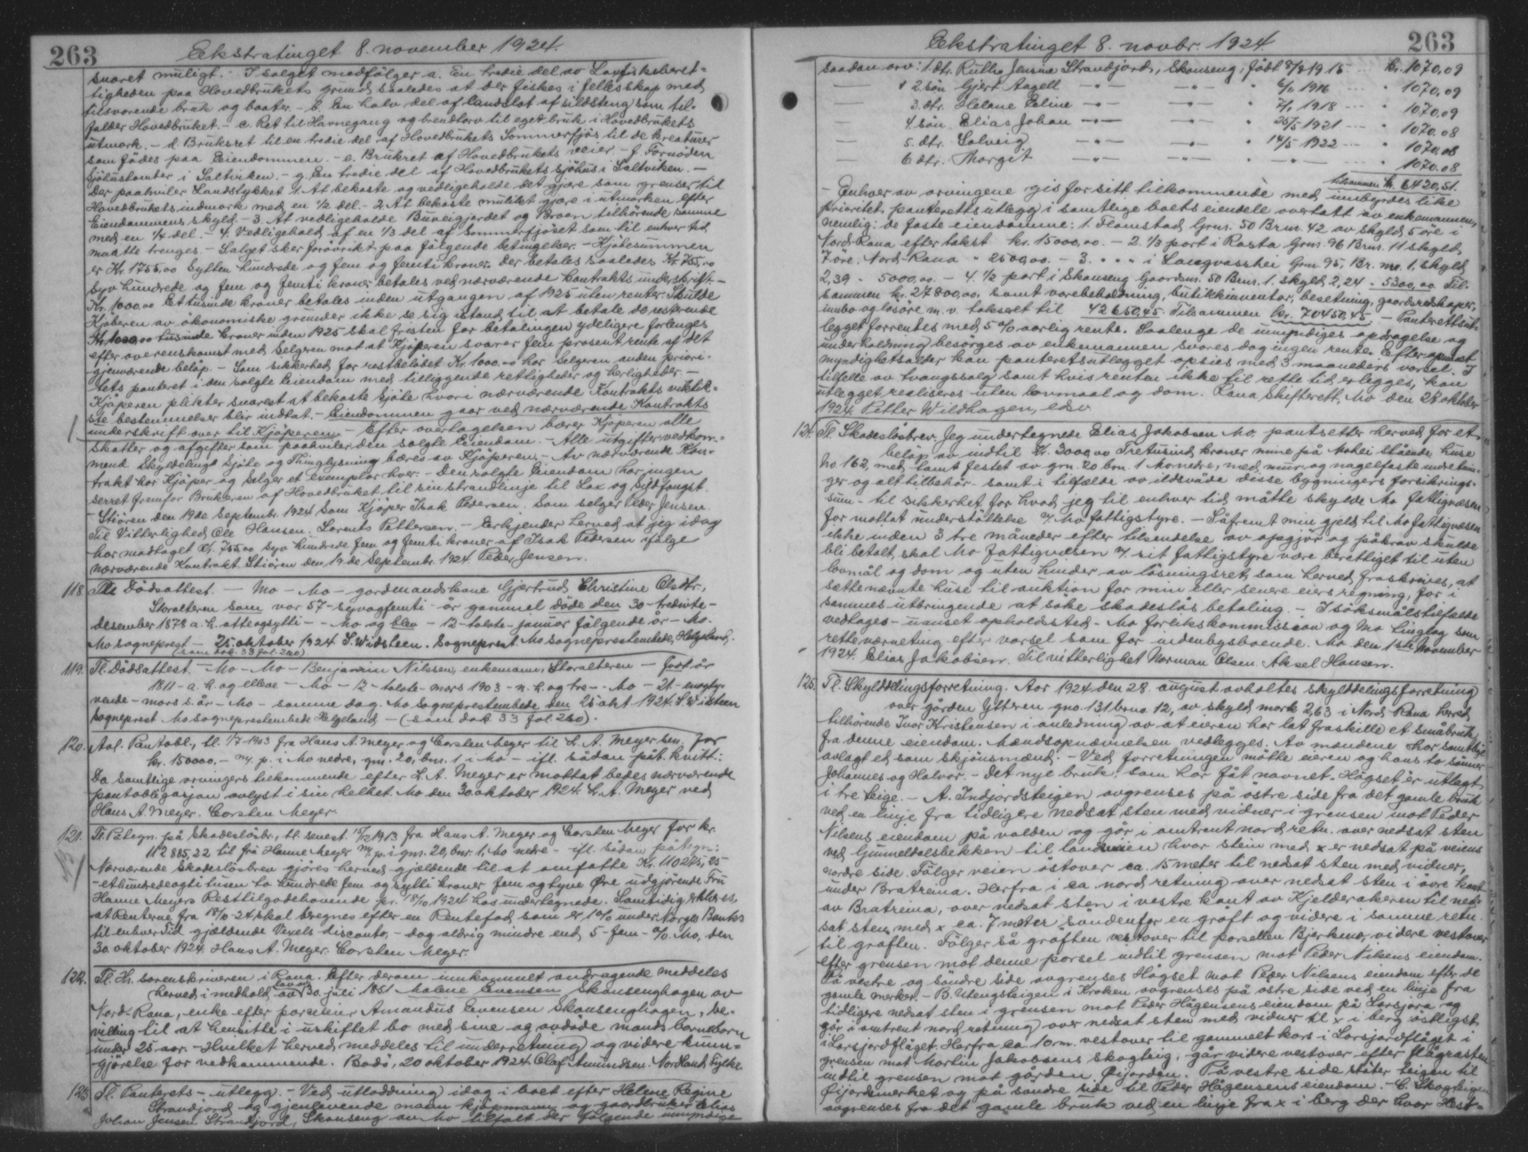 263 Ekstratinget 8. november 1924.
svaret muligt. - I salget medfølger a. En tredie del av Laxfiskeberet-
tigheden paa Hovedbrukets grund saaledes at der fiskes i fellesskap med
tilsvarende bruk og baater. - b. En halv del af landslot af sildsteng som til-
falder Hovedbruket. - c. Ret til Havnegang og til eget bruk i Hovedbrukets
utmark. - d. Bruksret til en tredie del af Hovedbrukets Sommerfjøs til de Kreaturer
som fødes paa Eiendommen. - e. Bruksret af Hovedbrukets veier - f. Fornøden
sjøhustomter i Saltviken. - g. En tredie del af Hovedbrukets sjøhus i Saltviken. -
Der paahviler Landstykket 1. At bekoste og vedligeholde det gjære som grenser til
Hovedbrukets indmark med en 1/2 del. - 2. At bekoste mulilet gjære i utmarken efter
Eiendommens skyld. - 3. At vedligeholde Bureisgjærdet og Broen tilhørende samme
med en 1/4 del. - 4. Vedligehold af en 1/3 del af Sommerfjøset som til enhver tid
maatte trenges. - Salget sker forøvrikt paa følgende betingelser - Kjøbesummen
er Kr. 1755,00 Sytten hundrede og fem og femti kroner. der betales saaledes Kr. 755,00
Syv hundrede og fem og femti kroner betales ved nærværende Kontrakts underskrift -
Kr. 1000,00 Et tusinde kroner betales inden utgangen af 1925 uten renter. Skulde
Kjøberen av økonomiske grunder ikke se sig istand til at betale de resterende
Kr. 1000,00 tusinde kroner inden 1925 skal fristen for betalingen ydeligere forlenges
efter overenskomst med Selgeren mot at Kjøperen svarer fem prosent rente af det
gjenværende beløp. - Som sikkerhed for restbeløbet Kr. 1000,00 har selgeren anden priori-
tets panteret i den solgte Eiendom med tilliggende rettigheder og herligheder. -
Kjøperen plikter snarest at bekoste skjøte hvori nærværende Kontrakts viktik-
ste bestemmelser blir indtat. - Eiendommen gaar ved nærværende Kontrakts
underskrift over til Kjøperen. - Efter overtagelsen bærer Kjøperen alle
skatter og afgifter som paahviler den solgte Eiendom. - Alle utgifter vedkom-
mend Skylddeling, skjøte og Thinglysning bæres av Kjøperen. - Av nærværende Kon-
trakt har Kjøper og Selger et exemplar hver. - Den solgte Eiendom har ingen
særret fremfor Brukeren af Hovedbruket til sin strandlinje til Lax og Sildfangst.
Stiøren den 19de Septembr. 1924 Som Kjøper Isak Pedersen. Som selger Peder Jensen.
Til Vitterlighed Ole Hansen. Lorents Pettersen. - Erkjender herved at jeg idag
har modtaget Kr. 755,00 syv hundrede fem og femti kroner af Isak Pedersen ifølge
nærværende Kontrakt Stiøren den 19 de Septembr. 1924 Peder Jensen.
118. Tl. Dødsattest. - Mo - Mo - gardmandskone Gjertrud Christine Olsdtr,
Storalteren som var 57 - syvogfemti - år gammel døde den 30 - trediete -
desember 1878 a. h. otteogsytti - Mo og blev - 12 - tolvte - januar følgende år - Mo.
Mo sogneprest - 25. oktober 1924 S. Widsteen. Sogneprest Mo sogneprestembede, Helgeland.
(sam dok 33 fol 260)
119. Tl. Dødsattest. - Mo - Mo - Benjamin Nilsen, enkemann, Storalteren - født år
1811 - a. h. og elleve - Mo - 12 - tolvte - mars 1903 - n. h. og tre - Mo - 21 - enogty-
vende - mars s. år - Mo - samme dag. Mo sogneprestembede den 25 okt 1924. S. Widsteen
sogneprest Mo sogneprestembede Helgeland - (sam dok 33 fol 260).
120. Avl. Pantobl., tl. 1/7 1903 fra Hans A. Meyer og Carsten Meyer til L. A. Meyer sen. for
kr. 150000. - m. p. i Mo nedre, gnr. 20, bnr. 1 i Mo - ifl. sådan påt. kvitt:
Da samtlige arvingers tilkommende efter L. A. Meyer er mottat bedes nærværende
pantobligasjon avlyst i sin helhet Mo den 30 oktober 1924. L. A. Meyer ved
Hans A. Meyer. Carsten Meyer.
121. Tl. Påtegn. på Skadesløsbr., tl. senest 15/10 1913 fra Hans A. Meyer og Carsten Meyer for kr.
112885,22 til fru Hanne Meyer m/ p. i gnr. 20, bnr. 1, Mo nedre - ifl. sådan påtegn:
Nærværende Skadesløsbrev gjøres herved gjældende til at omfatte Kr. 110275,25
- ethundredeogti tusen to hundrede fem og sytti kroner fem og tyve Øre, utgjørende Fru
Hanne Meyers Resttilgodehavende pr. 18/10 1924 hos undertegnede. Samtidig
at Renterne fra 18/10 24. skal beregnes efter en Rentefod som er 1% under Norges Banks
til enhver Tid gjældende Vexels disconto, - dog aldrig mindre end 5 - fem - % Mo, den
30 oktober 1924. Hans A. Meyer. Carsten Meyer.
122. Tl. Hr. sorenskriveren i Rana. Efter derom innkommet andragende meddeles
herved i medhold lov av 30. juli 1851 Malene Evensen Skonsenghagen av
Nord-Rana, enke efter Amandus Evensen Skonsenghagen, be-
villing til at hensitte i uskiftet bo med sine og avdøde mands barn
under 25 aar. - Hvilket herved meddeles til underretning og videre kunn-
gjørelse for vedkommende. Bodø, 20 oktober 1924. Olaf Amundsen. Nordland Fylke.
123. Tl. Panterets - utlegg - Ved utlodding idag i boet efter Helene Regine
Strandjord og gjenlevende mann kjøpmann og gaardbruker Elias
Johan Jensen Strandjord, Skonseng av tilfalt der følgende umyndige
Ekstratinget 8. novbr. 1924. 263
saadan arv: 1. dtr. Ruths Jensine Strandjord, Skonseng, født 1915 - kr. 1070,09
- 2. søn Gjert Aagett - " - 1916 " 1070,09
- 3. dtr. Helene Eline - " - 1918 " 1070,09
- 4. søn Elias Johan - " - 25/5 1921 " 1070,08
- 5. dtr. Solveig - " - 14/5 1922 " 1070,08
- 6. dtr. Margit - " - " 1070,08
tilsammen kr. 6420,51.
- Enhver av arvingene gis for sitt tilkommende med innbyrdes like
prioritet, panteretts utlegg i samtlige boets eiendele overtatt av enkemannen,
nemlig: de faste eiendomme: 1. Flomstad Grnr. 50 Brnr. 42 av skyld 5 øre i
Nord-Rana efter takst kr. 15000,00. - 2. 1/3 part i Rosta Grnr. 96 Brnr. 11 skyld
7 øre. Nord-Rana " 2500,00 - 3. " " " i Langvasshei Grnr. 95, Br. nr. 1. skyld
2,39 - 5000,00 - 4. 1/2 part i Skonseng Gaardnr. 50 Bnr. 1. skyld 2,24 - 5300,00 Til-
sammen kr. 27800,00. samt varebeholdning, butikkinventar, besetning, gaardsredskaper,
innbo og løsøre m. v. taksert til 42650,45 Tilsammen kr. 70450,45 - Panterettsut-
legget forrentes med 5% aarlig rente. Saalenge de umyndiges opdragelse og
underholdning besørges av enkemannen svares dog ingen rente. Efter opnaadd
myndighetsalder kan panteretsutlegget opsies med 3 maaneders varsel. I
tilfelle av tvangssalg samt hvis renten ikke til rette tid erlegges, kan
utlegget realiseres uten lovmaal og dom. Rana Skifterett, Mo den 28 oktober
1924 Petter Wildhagen, edsv
124. Tl. Skadesløsbrev. Jeg undertegnede Elias Jakobsen Mo, pantsetter herved for et
beløp av indtil kr. 3000,00 Tretusind kroner mine på Mohei stående huse
No 162, med tomt festet av grn. 20 brn. 1 Mo nedre, med mur- og nagelfaste indretnin-
ger og alt tilbehør samt i tilfælde av ildsvåde disse bygningers forsikrings-
sum - til sikkerhet for hvad jeg til enhver tid måtte skylde Mo fattigvæsen
for mottat understøttelse av Mo fattigstyre. - Såfremt min gjeld til Mo fattigvæsen
ikke inden 3 tre måneder efter tilsendelse av opgjør og påkrav skulde
bli betalt, skal Mo fattigvæsen v/ sit fattigstyre være berettiget til uten
lovmål og dom og uten hinder av løsningsret, som herved fraskrives, at
sætte nævnte huse til auktion for min eller senere eiers regning, for i
sammes utbringende at søke skadesløs betaling. - I søksmålstilfælde
vedtages - uanset opholdssted - Mo forlikskommission og Mo tinglag som
rette værneting efter varsel som for indenbygsboende. Mo den 1ste November
1924. Elias Jakobsen. Til vitterlighet Norman Olsen. Aksel Hansen.
125. Tl. Skylddelingsforretning. Aar 1924 den 28 august avholtes skylddelingsforretning
over gården Ytteren gno. 13, brno 12, av skyld mark 2,63 i Nord Rana herred,
tilhørende Ivar Kristensen i anledning av at eieren har lat fraskille et småbruk
fra denne eiendom. Mændsopnævnelsen vedlegges. Av mændene har samtlige
avlagt ed som skjønsmænd. - Ved forretningen møtte eieren og hans to sønner
Johannes og Halvor. - Det nye bruk, som har fåt navnet Høgset er utlagt
i tre teige. - A. Indjordsteigen avgrenses på østre side fra det gamle bruk
ved en linje fra tidligere nedsat sten med vidner i grensen mot Peder
Nilsens eiendom på valden og går i omtrent nord retn. over nedsat sten
ved Gummeldalsbekken til landeveien hvor stein med x er nedsat på veiens
nordre side. Følger veien østover ca. 15 meter til nedsat sten med vidner,
under Bratreina. Herfra i ca nord retning over nedsat sten i øvre kant
av Bratreina, over nedsat sten i vestre kant av Kjelderakeren til ned-
sat sten med x ca. 7 meter søndenfor en grøft og videre i samme retn.
til grøften. Følger så grøften vestover til parsellen Bjerkmo, videre vestover
efter grensen mot denne parsel indtil grensen mot Peder Nilsens eiendom.
På vestre og søndre side avgrenses Høgset mot Peder Nilsens eiendom efter de
gamle merker. - B. Utengsteigen i Kroken avgrenses på østre side ved en linje fra
tidligere nedsat sten i grensen mot Peder Hågensens eiendom på Larsjora og
går i omtrent nord retning over nedsat sten med vidner til x i berg østligst
i Larsjordflåget. Herfra ca 10 m. vestover til gammelt kors i Larsjordflåget i
grensen mot Martin Jakobsens skogteig, går videre vestover efter flågrasten
indtil grensen mot gården Øijorden. På vestre side støter teigen til
Øijordmerket og på søndre side til Peder Hågensens eiendom. - C. Skogteigen
avgrenses fra det gamle bruk ved en linje fra x i berg der hvor Hest-